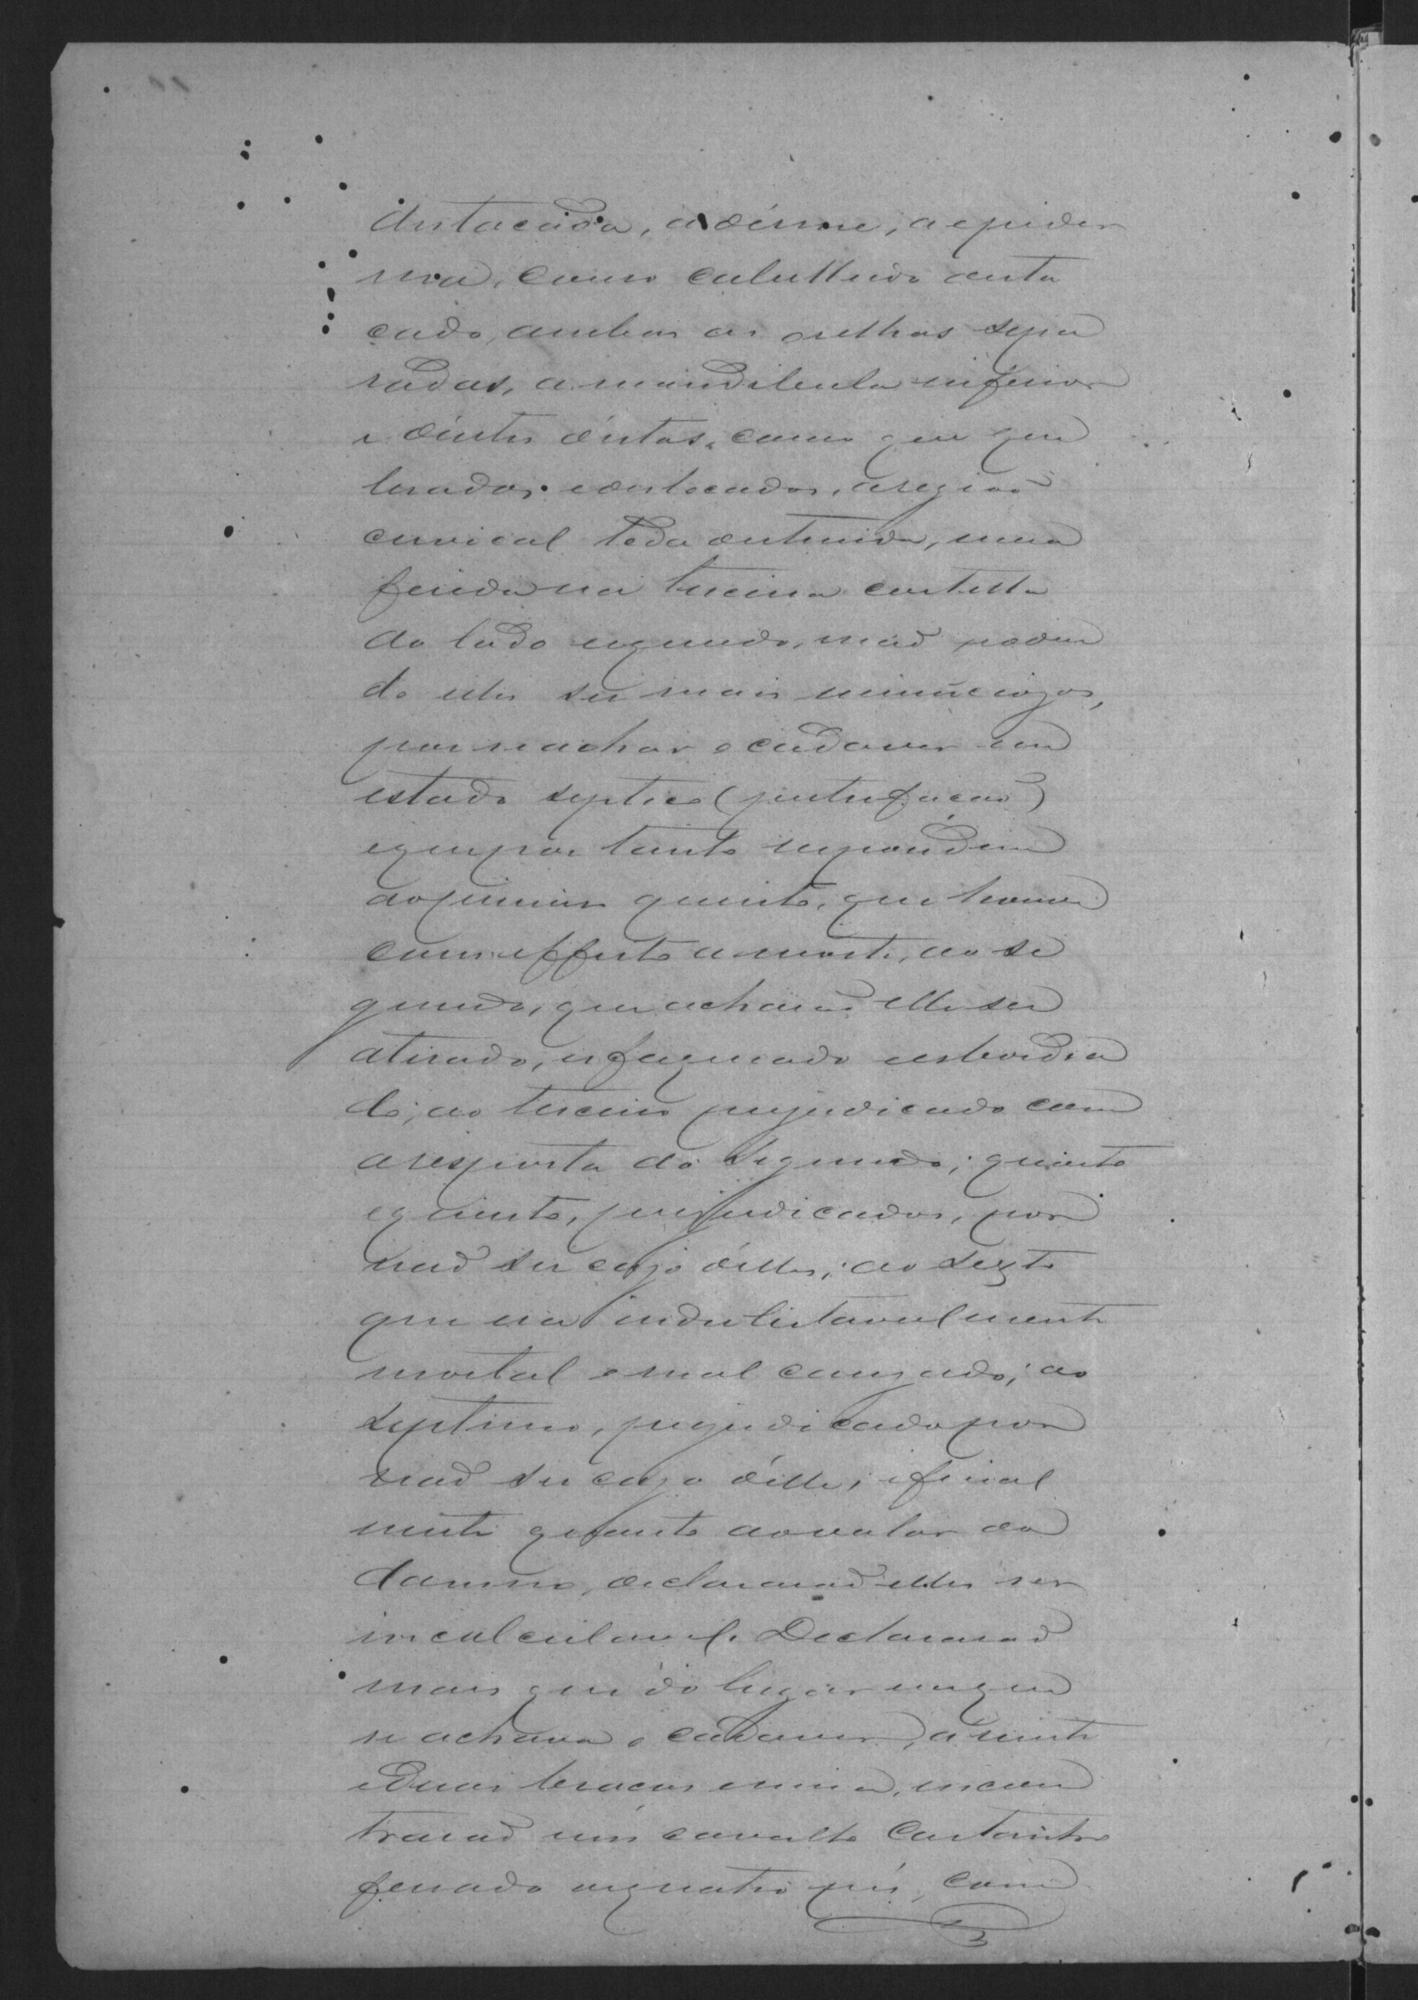 destacada, a dérme, a epider
me, como cabelludo desta
cado, ambas as orelhas sepa
radas, a mandibula inferior
e dentes déstas, como que que
brados e deslocados, a região
cervical toda destruida, uma
ferida na terceira costella
do lado esquerdo, mas poden
do elles ser mais minuciozos,
por se achar o cadaver em
estado septico (putrefacão)
e que por tanto respondem
ao primeiro quesito, que houve
com effeito a morte, ao se
gundo, que acharão elle ser
atirado, esfaqueado e esbordoa
do; ao terceiro prejudicado com
a resposta do segundo; quarto
e quinto, prejudicados, por
não ser cazo délles; ao sexto
que era indubitavelmente
mortal o mal cauzado; ao
septimo, prejudicado por
não ser cazo délle; e final
mente quanto ao valor do
damno, declararão elles ser
incalculavel. Declararão
mais que do lugar em que
se achava o cadaver, a vinte
e duas braças acima, encon
trarão um cavallo castanho
ferrado os quatro pés, com